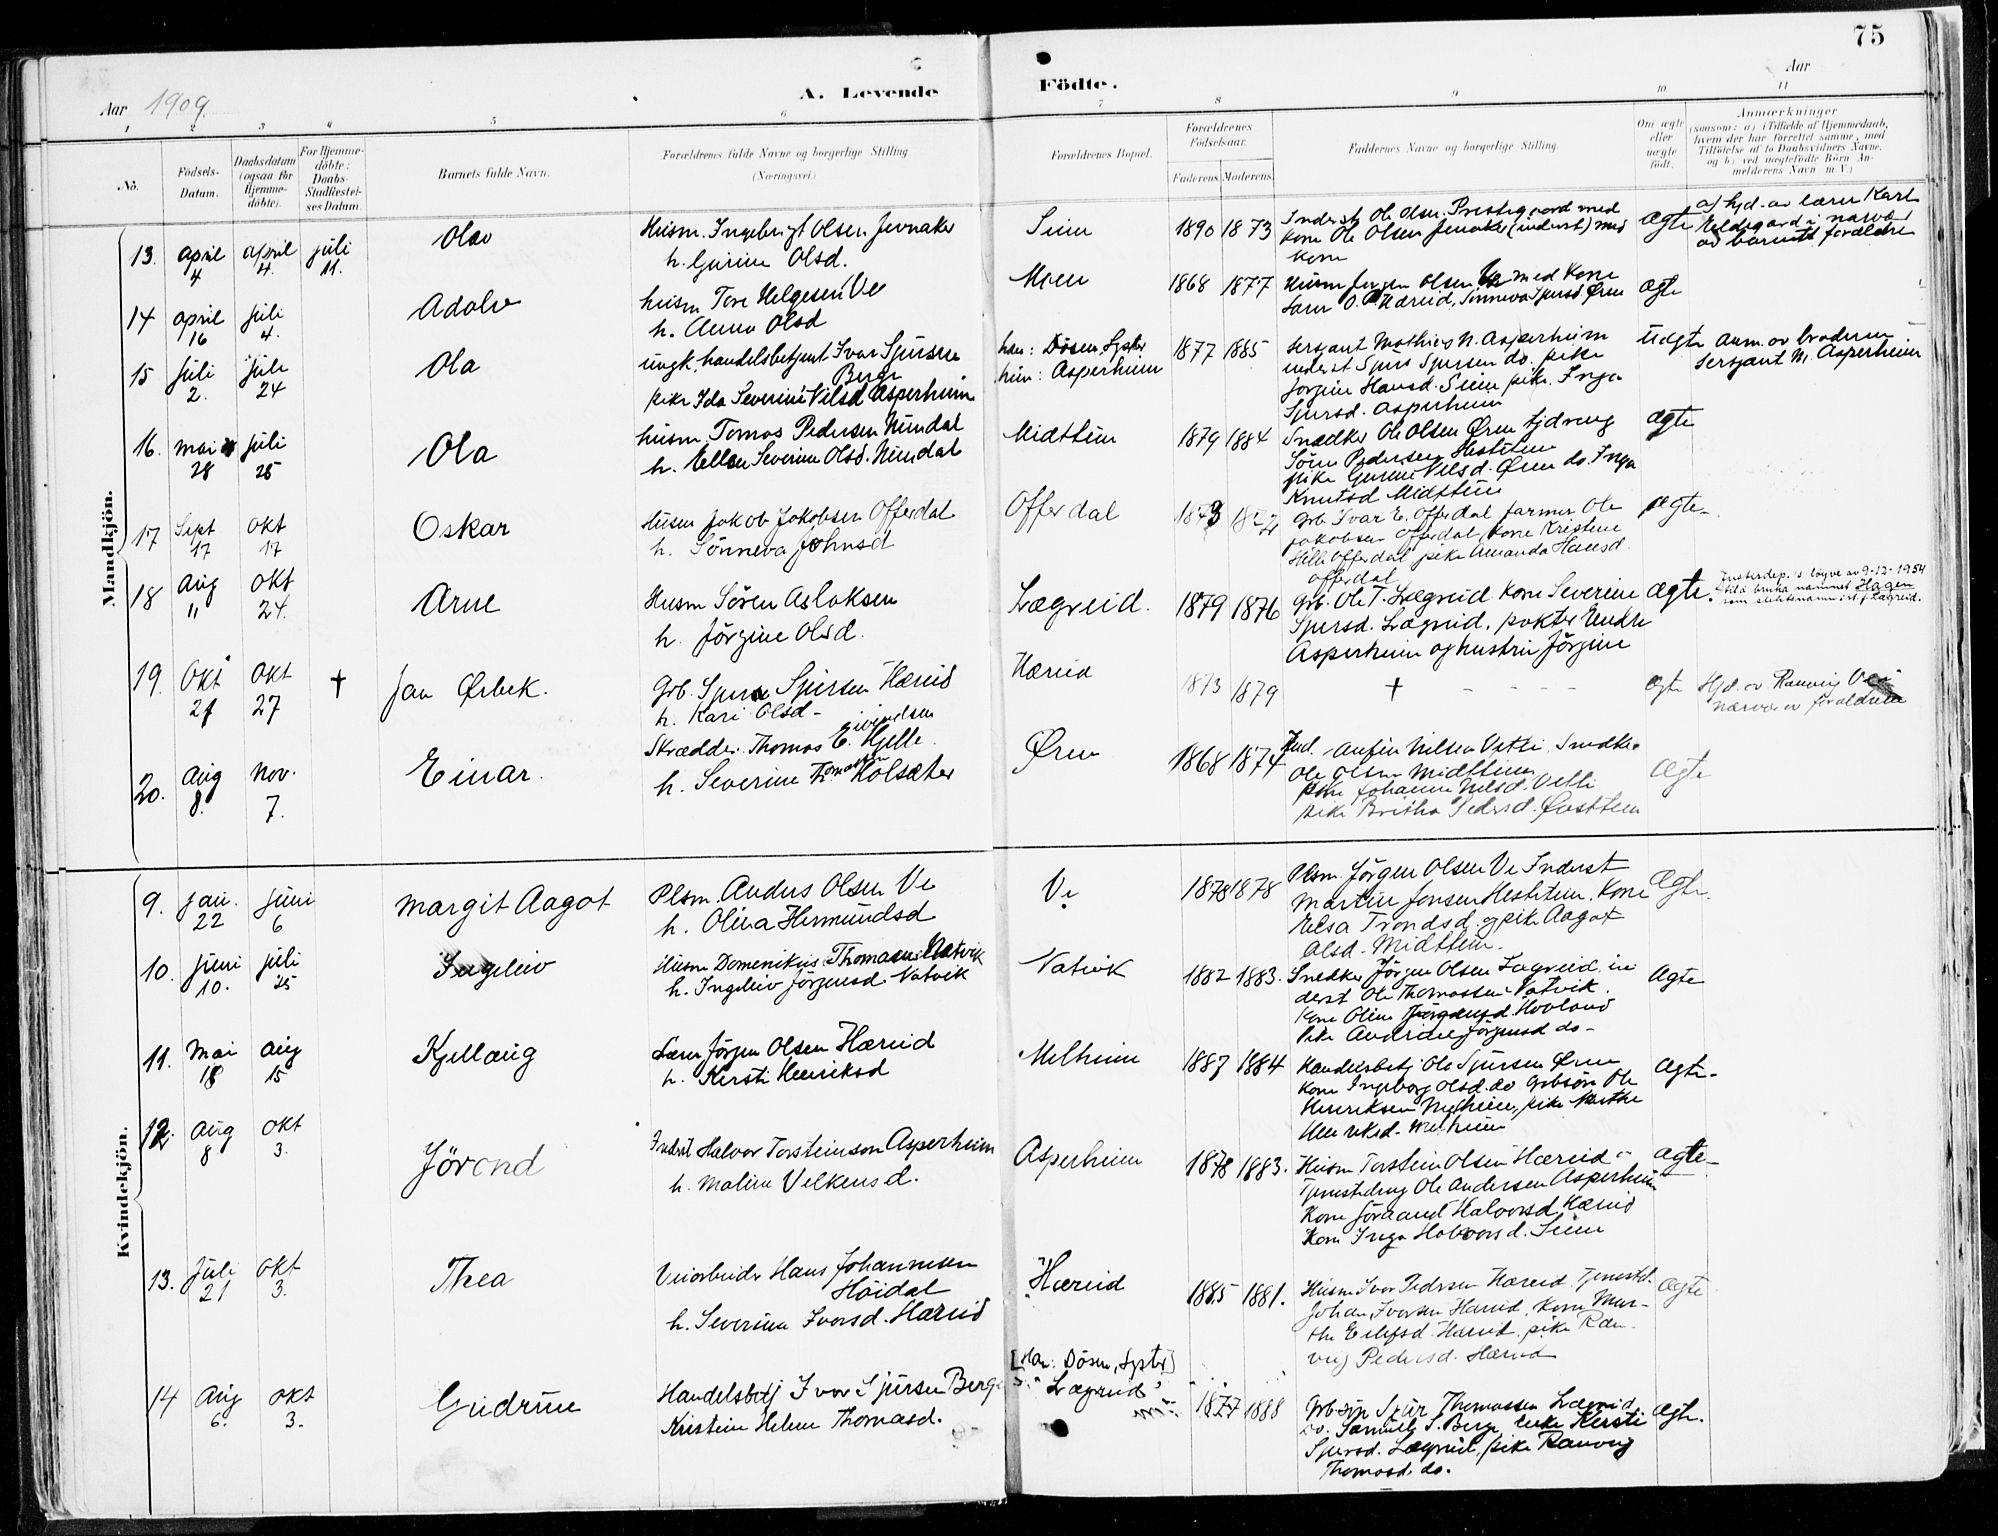 75
Aar 1909.
A. Levende Födte.
Aar
1 2 3 4 5 6 7 8 9 10 11
No.
Födsels-Datum.
Daabsdatum (ogsaa for Hjemme-döbte).
For Hjemme-döbte: Daabs-Stadfæstel-ses Datum.
Barnets fulde Navn.
Forældrenes fulde Navne og borgerlige Stilling
(Næringsvei.)
Forældrenes Bopæl.
Forældrenes Födselsaar.
Faderens. Moderens.
Faddernes Navne og borgerlige Stilling.
Om ægte eller uægte födt.
Anmærkninger
(saasom: a) i Tilfælde af Hjemmedaab,
hvem der har forrettet samme, med
Tilföielse af to Daabsvidners Navne,
og b) ved uægtefödte Börn An-
melderens Navn m. V.)
Mandkjön.
13. april 4 april 4. juli 11. Olav
Husm. Ingebrigt Olsen Jevnaker
h. Gurine Olsd.
Seim 1890 1873
Inderst Ole Olsen Prestegaard med
kone Ole Olsen Jevnaker (inderst) med
kone
ægte
a) hjd. av lærer Karl
Heldegaard i nærvær
av barnets forældre
14 april 16 juli 4. Adolv
husm Tore Helgesen Ve
h. Anna Olsd
Moen 1868 1877
Husm Jørgen Olsen Ve med Kone
Sønneva Sjursd Øren
ægte
15 juli 2. juli 24 Ola
ungk. handelsbetjent Ivar Sjursen
Berge
pike Ida Severine Nilsd Asperheim
han: Døsen, Lyster
hun: Asperheim
1877 1885
sersjant Mathias N. Asperheim
inderst Sjur Sjursen do. pike
Jørgine Hansd. Seim pike. Inga
Sjursd. Asperheim
Uægte
anm. av broderen
Sersjant M. Asperheim
16. mai 28 juli 25 Ola
husm. Tomas Pedersen Nundal
h. Ellen Severine Olsd. Nundal
Midttun 1879 1884
Snedker Ole Olsen Øren tjdreng
Søren Pedersen Hestetun
pike Gurine Nilsd. Øren do. Inga
Knutsd Midttun
ægte
17 Sept 17 okt 17 Oskar
Husm Jakob Jakobsen Offerdal
h. Sønneva Johnsd
Offerdal 1873
Grb Ivar E. Offerdal farmer Ole
Jakobsen Offerdal, kone Kristine
Offerdal pike Amanda Hansd.
Offerdal
ægte
18 Aug 11 okt 24. Arne
Husm Sören Aslaksen
h. Jörgine Olsd.
Lægreid. 1879 1876
Grb. Ole T. Lægreid kone Severine
Sjursd. Lægreid. pokter Endre
Asperheim og hustru Jörgine
ægte.
Justisdep.s løyve av 9-12-1954
til å bruka namnet Hagen
som slektsnamn i st. f. Lægreid.
19. Okt 21 Okt 27 † Jan Ørbek.
Grb. Sjur Sjursen Hæreid
h. Kari Olsd -
Hæreid 1873 1879
†
ægte
Hjd. av Ranveig
nærvær av forældrene
20. Aug 8. Nov. 7. Einar.
Skrædder. Thomas Eivindsen Hjelle.
h. Severine Thomasdtr Kolsæter
Øren 1868 1874
Anfin Nilsen Vetti, Snedker
Ole Olsen Midttun
pike Johanne Nilsd. Vetti
pike Britha Pedersd. Øvsttun
ægte
Kvindekjön.
9. jan. 22 juni 6 Margit Aagot
Plsm. Anders Olsen Ve
h. Olina Hermundsd
Ve 1878 1878
Plsm. Jörgen Olsen Ve Inderst
Martin Jensen Hestetun. Kone
Elsa Trondsd. og pike Aagot
Olsd. Midttun.
Ægte.
10. juni 10. juli 25 Ingeleiv
Husm Domenikus Thomassen Natvik
h. Ingeleiv Jörgensd Natvik
Natvik 1882 1883.
Snedker Jörgen Olsen Lægreid, in
derst Ole Thomassen Natvik
kone Olina Jörgensd. Hovland
Pike Andrine Jörgensd do-
Ægte
11. Mai 18 aug 15 Kjellaug
Lærer Jörgen Olsen Hæreid
h. Kersti Henriksd
Melheim 1887 1884
Handelsbetj Ole Sjursen Øren
kone Ingeborg Olsd. do Grbsön Ole
Henriksen Melheim, pike Marthe
Henriksd. Melheim
Ægte.
12. aug 8 okt 3. Jörond
Inderst Halvor Torsteinson Asperheim
h. Malin Velkensd.
Asperheim 1878 1883.
Husm Torstein Olsen Hæreid
Tjenestedreng Ole Andersen Asperheim
Kone Jöraand Halvorsd. Hæreid
Kone Inga Halvorsd. Seim
ægte
13. Juli 21 okt 3. Thea
Veiarbeider Hans Johannesen
Höidal
h. Severina Ivarsd. Hæreid
Hæreid 1885 1881.
Husm Ivar Pedersen Hæreid. Tjenestd.
Johan Ivarsen Hæreid. kone Mar-
the Eilifsd. Hæreid. pike Ran-
veig Pedersd. Hæreid
ægte
14 Aug 6. okt 3. Gudrun
Handelsbetj Ivar Sjursen Berge
Kristine Helene Thomasd.
[Han: Døsen, Lyster]
Lægreid
1877 1888
Grbsön Sjur Thomassen Lægreid
do. Samuel S. Berge enke Kersti
Sjursd. Lægreid, pike Ranveig
Thomasd. do.
ægte.